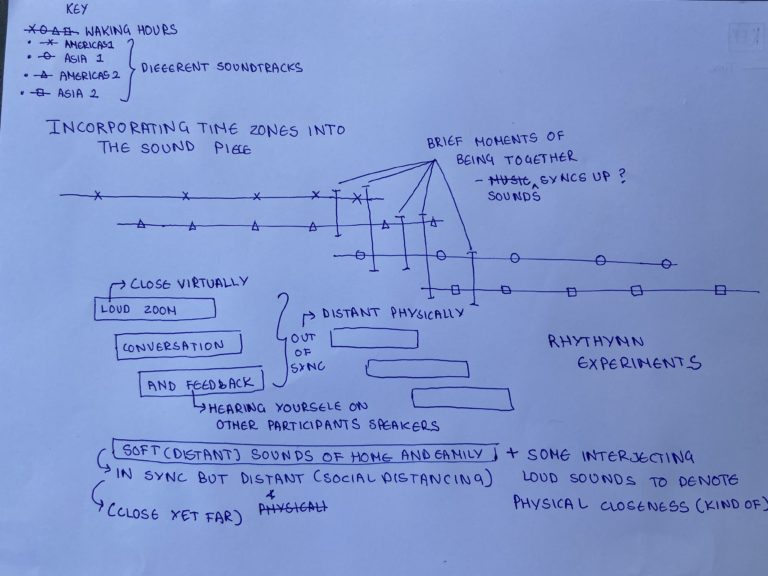 KEY
WAKING HOURS
AMERICAS 1
ASIA 1
AMERICAS 2
ASIA 2
DIFFERENT SOUNDTRACKS
INCORPORATING TIME ZONES INTO
THE SOUND PIECE
BRIEF MOMENTS OF
BEING TOGETHER
- MUSIC SYNCS UP ?
SOUNDS
CLOSE VIRTUALLY
LOUD ZOOM
CONVERSATION
AND FEEDBACK
OUT
OF
SYNC
DISTANT PHYSICALLY
HEARING YOURSELF ON
OTHER PARTICIPANTS SPEAKERS
RHYTHYMN
EXPERIMENTS
SOFT (DISTANT) SOUNDS OF HOME AND FAMILY + SOME INTERJECTING
IN SYNC BUT DISTANT (SOCIAL DISTANCING) LOUD SOUNDS TO DENOTE
(CLOSE YET FAR) PHYSICAL CLOSENESS (KIND OF)